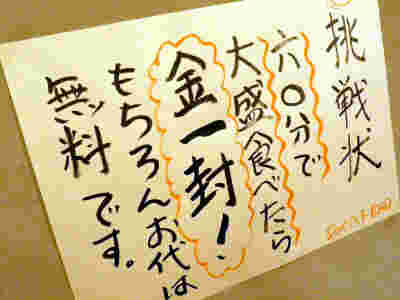 挑戦状
六〇分で
大盛食べたら
金一封!
もちろんお代は
無料です。